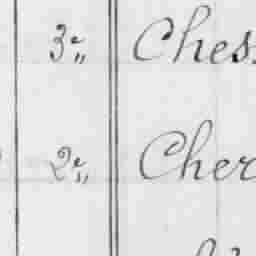 3e„ Chess
2e„ Cher